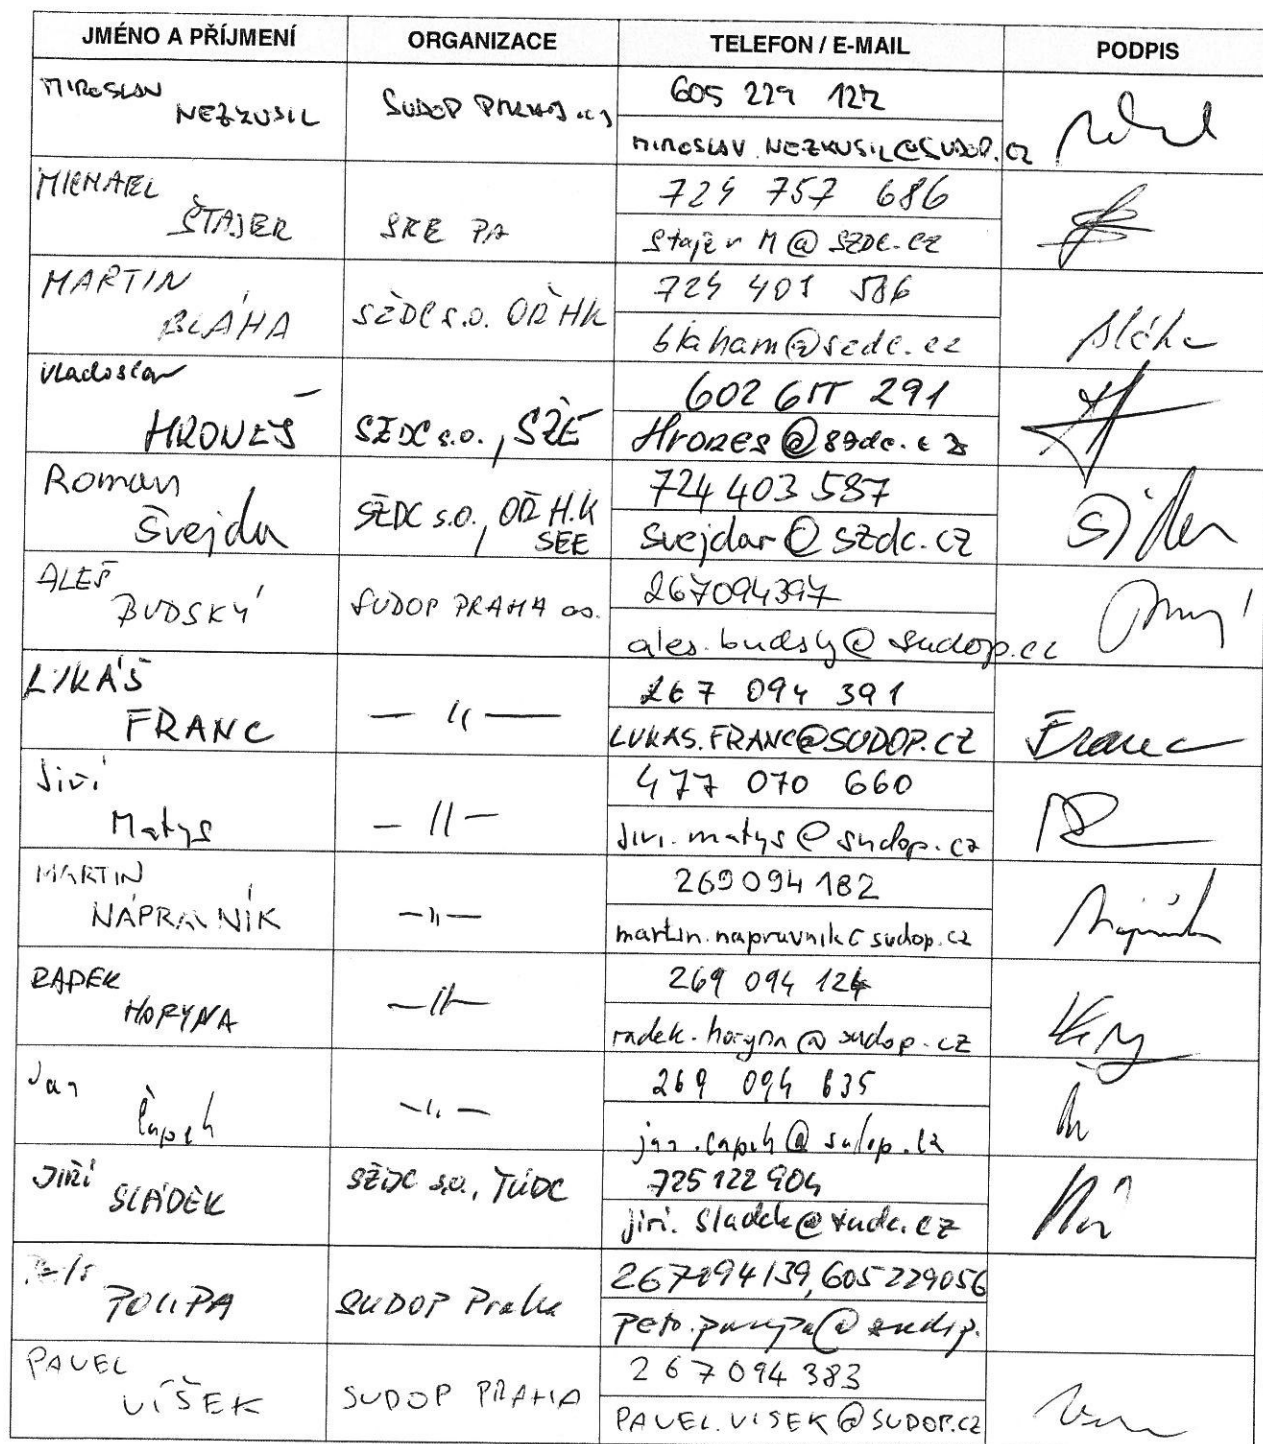 JMÉNO A PŘÍJMENÍ ORGANIZACE TELEFON / E-MAIL PODPIS
MIROSLAV NEZKUSIL SUDOP PRAHA a.s. 605 229 122
MIROSLAV.NEZKUSIL@SUDOP.CZ
MICHAEL ŠTAJER SEE PA 724 757 686
StajerM@SZDC.CZ
MARTIN BLÁHA SŽDC s.o. OŘ HK 724 401 586 Bláha
blaham@szdc.cz
Vladoslav HRONEŠ SŽDC s.o., SŽE 602 291
Hrones@szdc.cz
Roman Švejda SŽDC s.o., OŘ H.K 724 403 587
SEE svejdar@szdc.cz
ALEŠ BUDSKÝ SUDOP PRAHA a.s. 267094397
ales.budsky@sudop.cz
LUKÁŠ FRANC — 〃 — 267 094 391 Franc
LUKAS.FRANC@SUDOP.CZ
Jiří Matys — 〃 — 477 070 660
jiri.matys@sudop.cz
MARTIN NÁPRAVNÍK — 〃 — 269094182
martin.napravnik@sudop.cz
RADEK HORYNA — 〃 — 269 094 124
radek.horyna@sudop.cz
Jan Čapek — 〃 — 269 094 635
jan.capek@sudop.cz
JIŘÍ SLÁDEK SŽDC s.o., TÚDC 725122904
jiri.sladek@tudc.cz
POUPA SUDOP Praha 267094139, 605229056
PAVEL VÍŠEK SUDOP PRAHA 267094383
PAVEL.VISEK@SUDOP.CZ